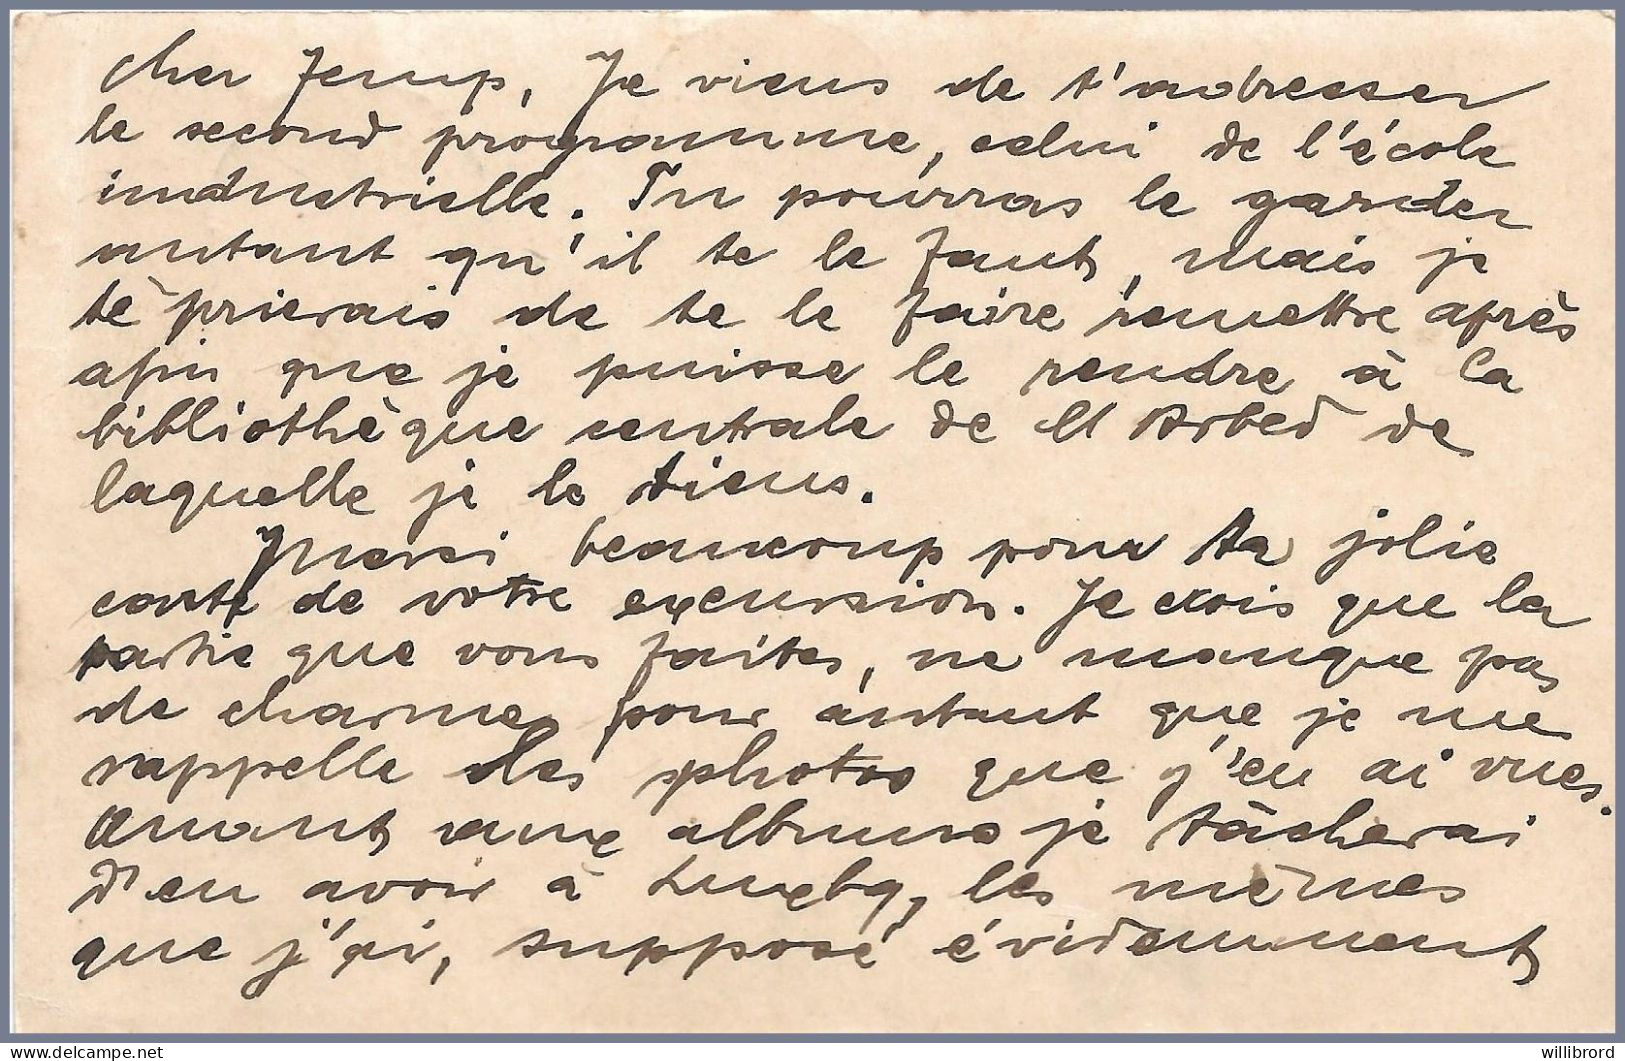 cher Jemp, Je viens de t'adresser
le second programme, celui de l'école
industrielle. Tu pourras le garder
autant qu'il te le faut, mais je
te prierais de te le faire remettre après
afin que je puisse le rendre à la
bibliothèque centrale de l'Arbed de
laquelle je le tiens.
Merci beaucoup pour ta jolie
carte de votre excursion. Je crois que la
partie que vous faites, ne manque pas
de charme, pour autant que je me
rappelle des photos que j'en ai vues.
Quant aux albums je tâcherai
d'en avoir à Luxbg, les mêmes
que j'ai, supposé évidemment
delcampe.net
willibrord